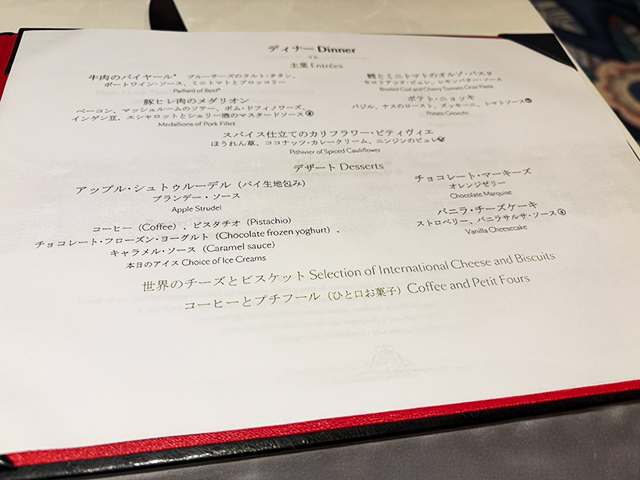 ディナー Dinner
主菜 Entrées
牛肉のパイヤール* ブルーチーズのタルト・タタン、
ポートワイン・ソース、ミニトマトとブロッコリー
Paillard of Beef*
鱈とミニトマトのオルゾ・パスタ
セロリアック・ピュレ、レモンバター・ソース
Broiled Cod and Cherry Tomato Orzo Pasta
豚ヒレ肉のメダリオン
ベーコン、マッシュルームのソテー、ポム・ドフィノワーズ、
インゲン豆、エシャロットとシェリー酒のマスタードソース
Medallions of Pork Fillet
ポテト・ニョッキ
バジル、ナスのロースト、ズッキーニ、トマトソース
Potato Gnocchi
スパイス仕立てのカリフラワー・ピティヴィエ
ほうれん草、ココナッツ・カレークリーム、ニンジンのピュレ
Pithivier of Spiced Cauliflower
デザート Desserts
アップル・シュトゥルーデル（パイ生地包み）
ブランデー・ソース
Apple Strudel
チョコレート・マーキーズ
オレンジゼリー
Chocolate Marquise
コーヒー（Coffee）、ピスタチオ（Pistachio）
チョコレート・フローズン・ヨーグルト（Chocolate frozen yoghurt）、
キャラメル・ソース（Caramel sauce）
本日のアイス Choice of Ice Creams
バニラ・チーズケーキ
ストロベリー、バニラサルサ・ソース
Vanilla Cheesecake
世界のチーズとビスケット Selection of International Cheese and Biscuits
コーヒーとプチフール（ひと口お菓子）Coffee and Petit Fours